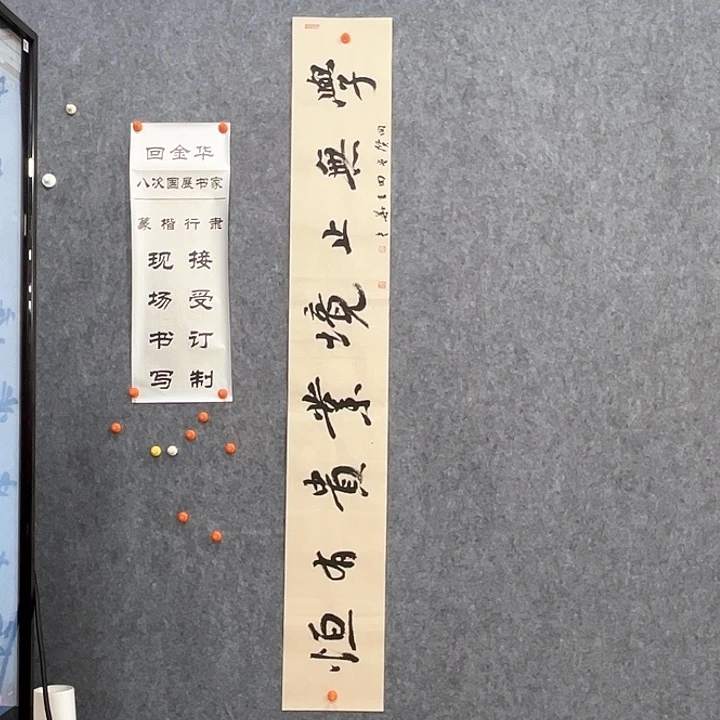 回金华
八次国展书家
篆楷行隶
现场书写
接受订制
學無止境業貴有恒